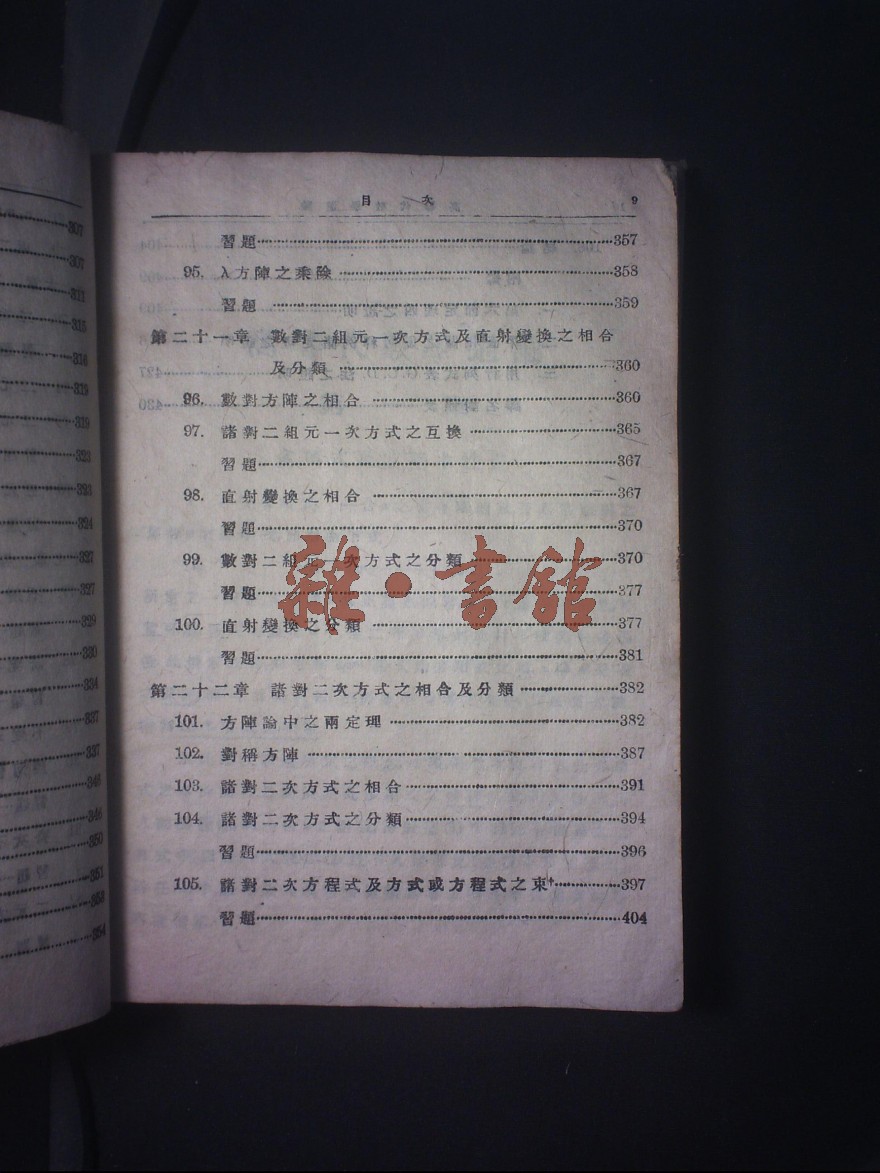 目 次 9
習題 357
95. λ方陣之乘除 358
習題 359
第二十一章 數對二組元一次方式及直射變換之相合
及分類 360
96. 數對方陣之相合 360
97. 諸對二組元一次方式之互換 365
習題 367
98. 直射變換之相合 367
習題 370
99. 數對二組元一次方式之分類 370
習題 377
100. 直射變換之分類 377
習題 381
第二十二章 諸對二次方式之相合及分類 382
101. 方陣論中之兩定理 382
102. 對稱方陣 387
103. 諸對二次方式之相合 391
104. 諸對二次方式之分類 394
習題 396
105. 諸對二次方程式及方式或方程式之束 397
習題 404
雜·書館
307
307
311
315
316
319
319
323
323
324
327
327
329
330
334
337
337
348
348
350
351
353
354